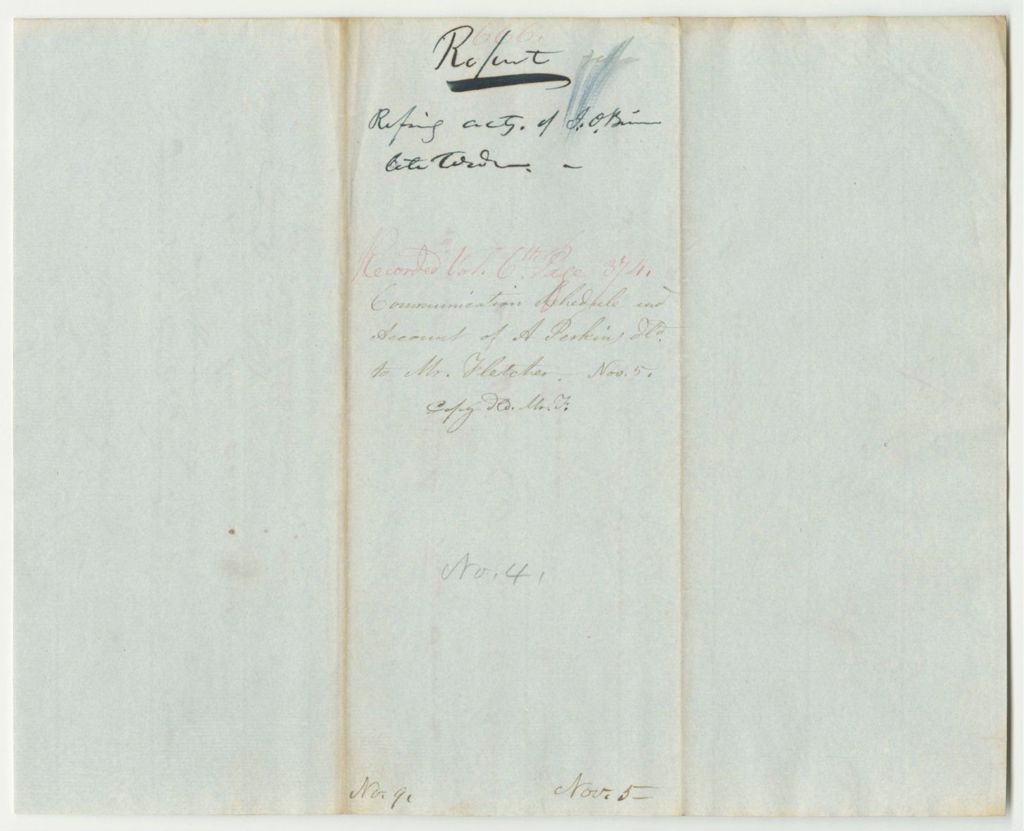 666.
Report
Refing accts. of J. O'Brien
late Warden. –
Recorded Vol. 6th Page 374.
Communication Schedule and
Account of A Perkins dld.
to Mr. Fletcher. Nov. 5.
Copy dld. Mr. F.
No. 4.
No. 9. Nov. 5–